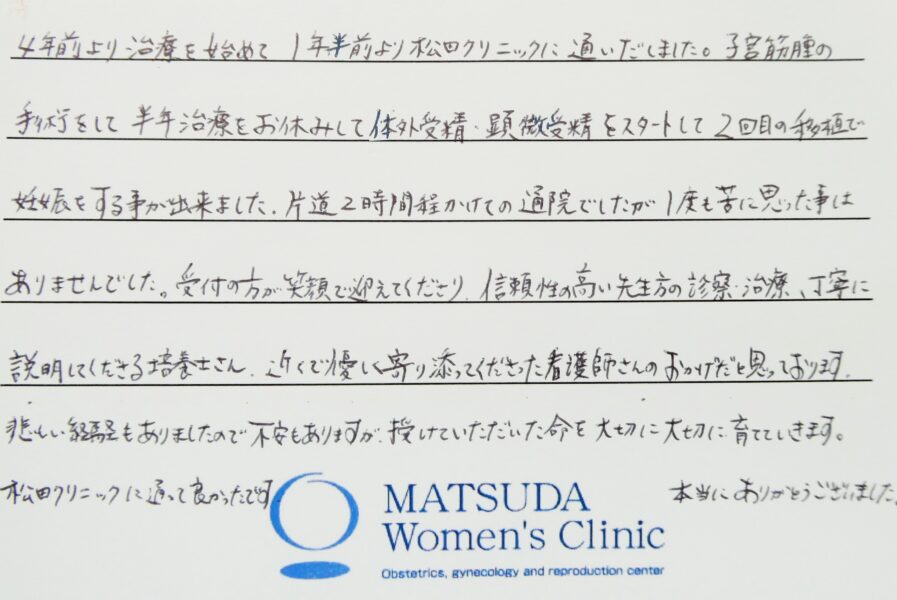 4年前より治療を始めて 1年半前より松田クリニックに通いだしました。子宮筋腫の
手術をして半年治療をお休みして体外受精・顕微受精をスタートして2回目の移植で
妊娠をする事が出来ました。片道2時間程かけての通院でしたが1度も苦に思った事は
ありませんでした。受付の方が笑顔で迎えてくださり、信頼性の高い先生方の診察・治療、丁寧に
説明してくださる培養士さん、近くで優しく寄り添ってくださった看護師さんのおかげだと思っております。
悲しい経験もありましたので不安もありますが、授けていただいた命を大切に大切に育てていきます。
松田クリニックに通って良かったです 本当にありがとうございました。
MATSUDA
Women's Clinic
Obstetrics, gynecology and reproduction center